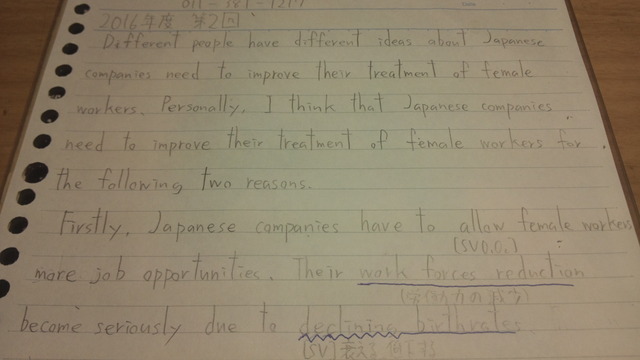 2016年度 第2回
Different people have different ideas about Japanese
companies need to improve their treatment of female
workers. Personally, I think that Japanese companies
need to improve their treatment of female workers for
the following two reasons.
Firstly, Japanese companies have to allow female workers
(SVO.O.)
more job opportunities. Their work forces reduction
(労働力の減少)
become seriously due to declining birthrates.
(SV)衰える